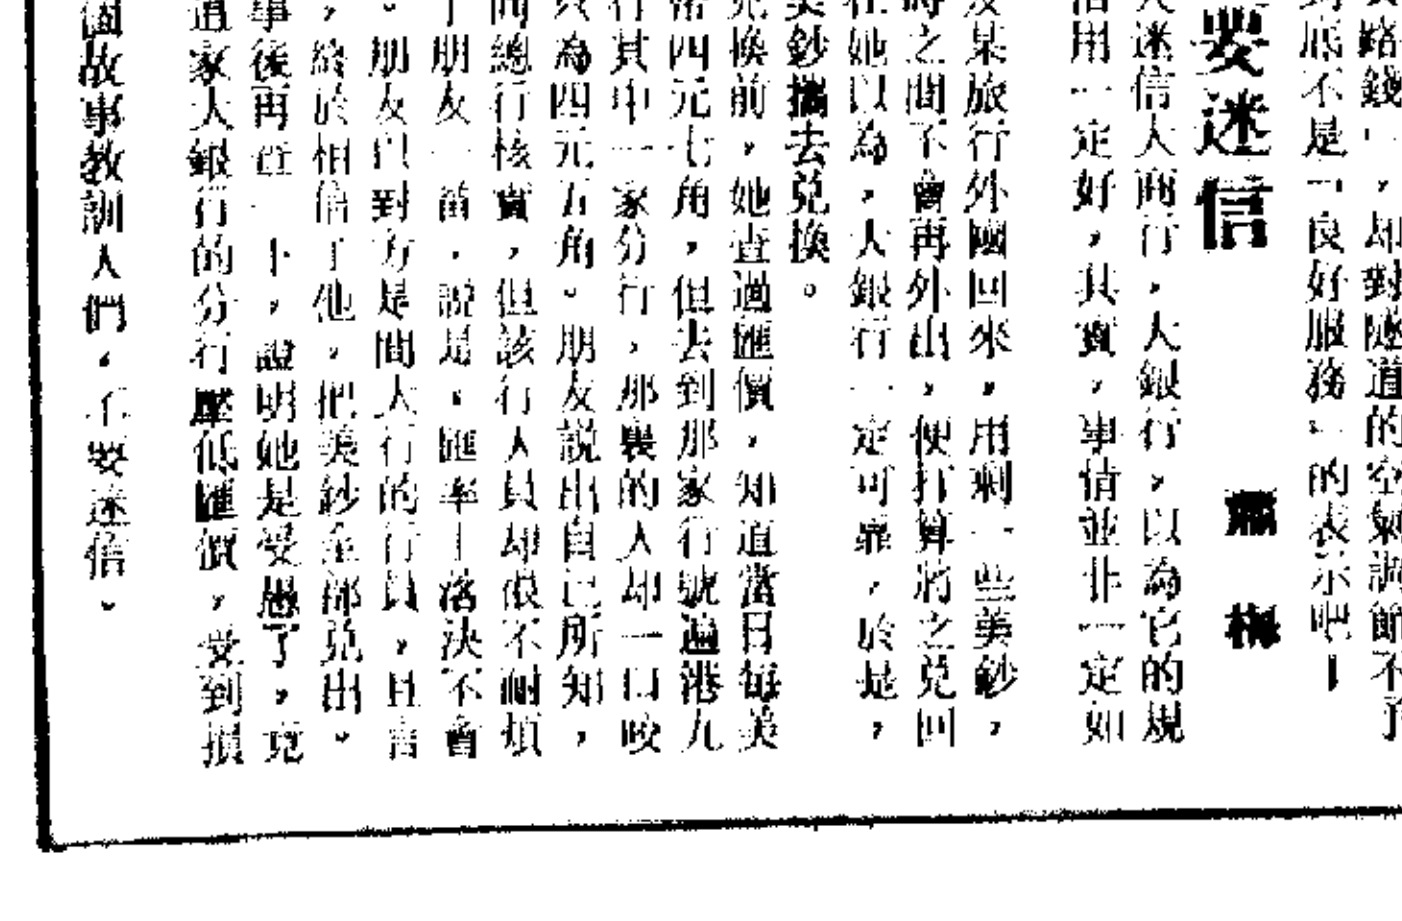 路錢」，却對隧道的空氣調節不了
到底不是「良好服務」的表示吧！
要迷信
蕭 梅
人迷信大商行，大銀行，以為它的規
信用一定好，其實，事情並非一定如
友某旅行外國回來，用剩一些美鈔，
時之間不會再外出，便打算將之兌回
在她以為，大銀行一定可靠，於是，
美鈔攜去兌換。
兌換前，她查過匯價，知道當日每美
幣四元七角，但去到那家行號遍港九
行其中一家分行，那裏的人却一口咬
只為四元五角。朋友説出自己所知，
向總行核實，但該行人員却很不耐煩
了朋友一頓，說是，匯率上落決不會
。朋友以對方是間大行的行員，且言
，終於相信了他，把美鈔全部兌出。
事後再查一下，證明她是受愚了，竟
這家大銀行的分行壓低匯價，受到損
個故事教訓人們，不要迷信。